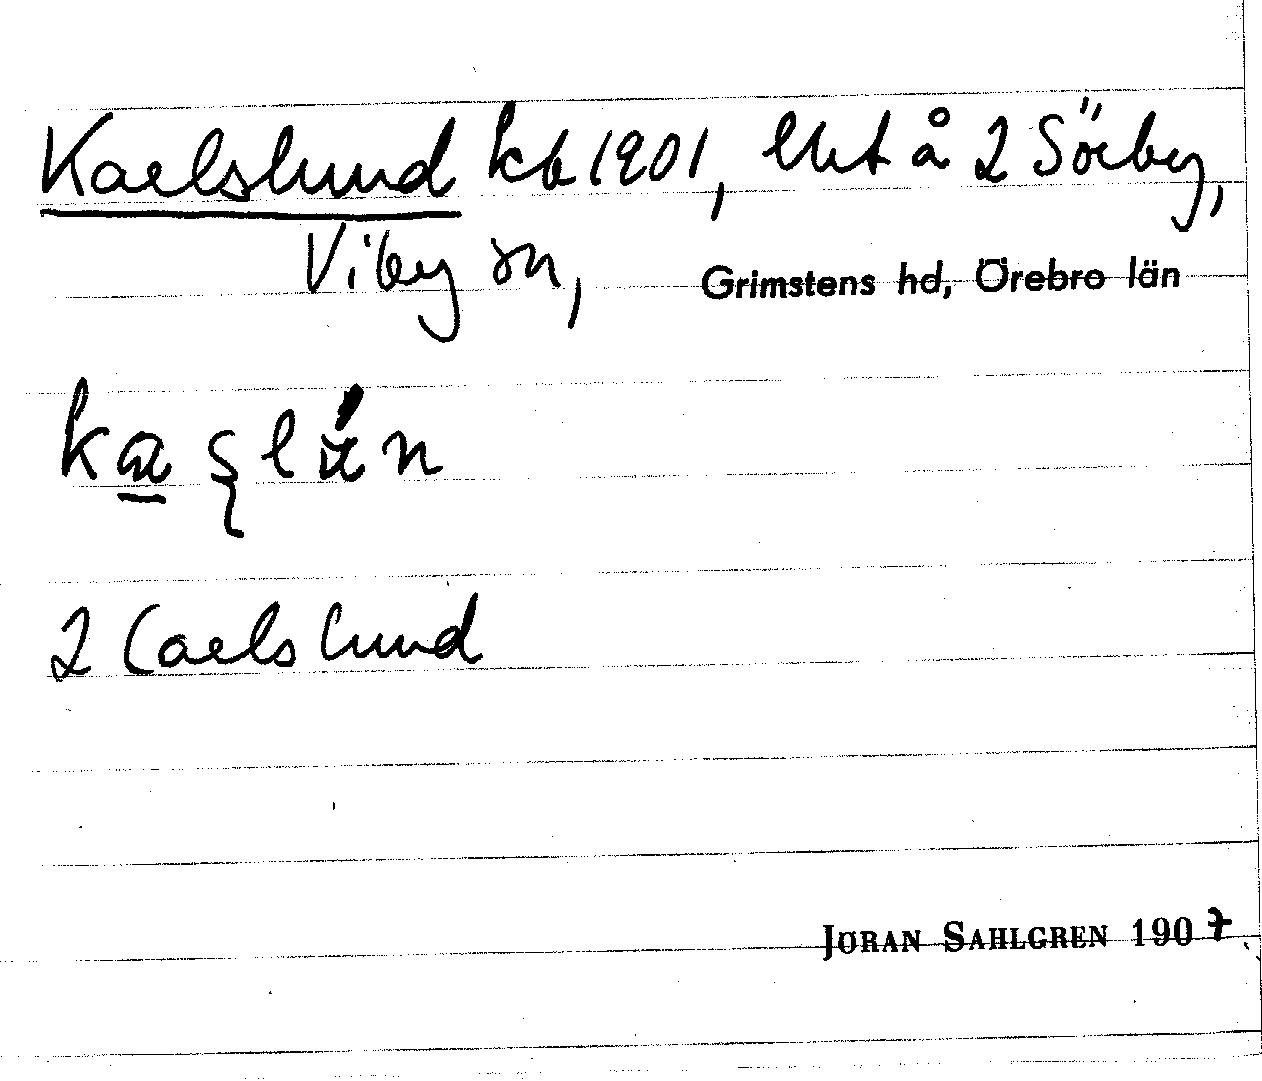 Karlslund kb 1901, lht å 2 Sörby,
Viby sn, Grimstens hd, Örebro län
2 Carlslund
JÖRAN SAHLGREN 1907